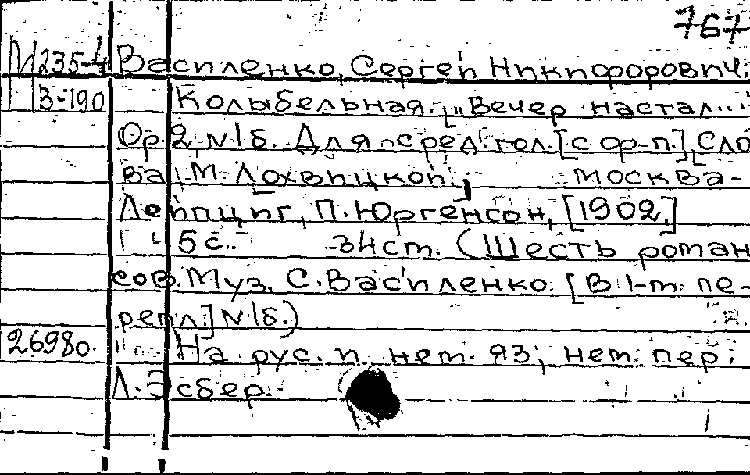 767
М 235-4 Василенко, Сергей Никифорович.
З-190 Колыбельная. ["Вечер настал..."
Ор. 2 №1б. Для сред. гол. [с ор-п.] Сло
ва М. Лохвицкой.] Москва-
Лейпциг, П. Юргенсон, [1902.]
5 с. ЗИст. (Шесть роман
сов. Муз. С. Василенко. [В 1-м пе-
репл.] №1б.)
26980. На рус. и нем. яз; нем. пер.
Л. Эсбер.